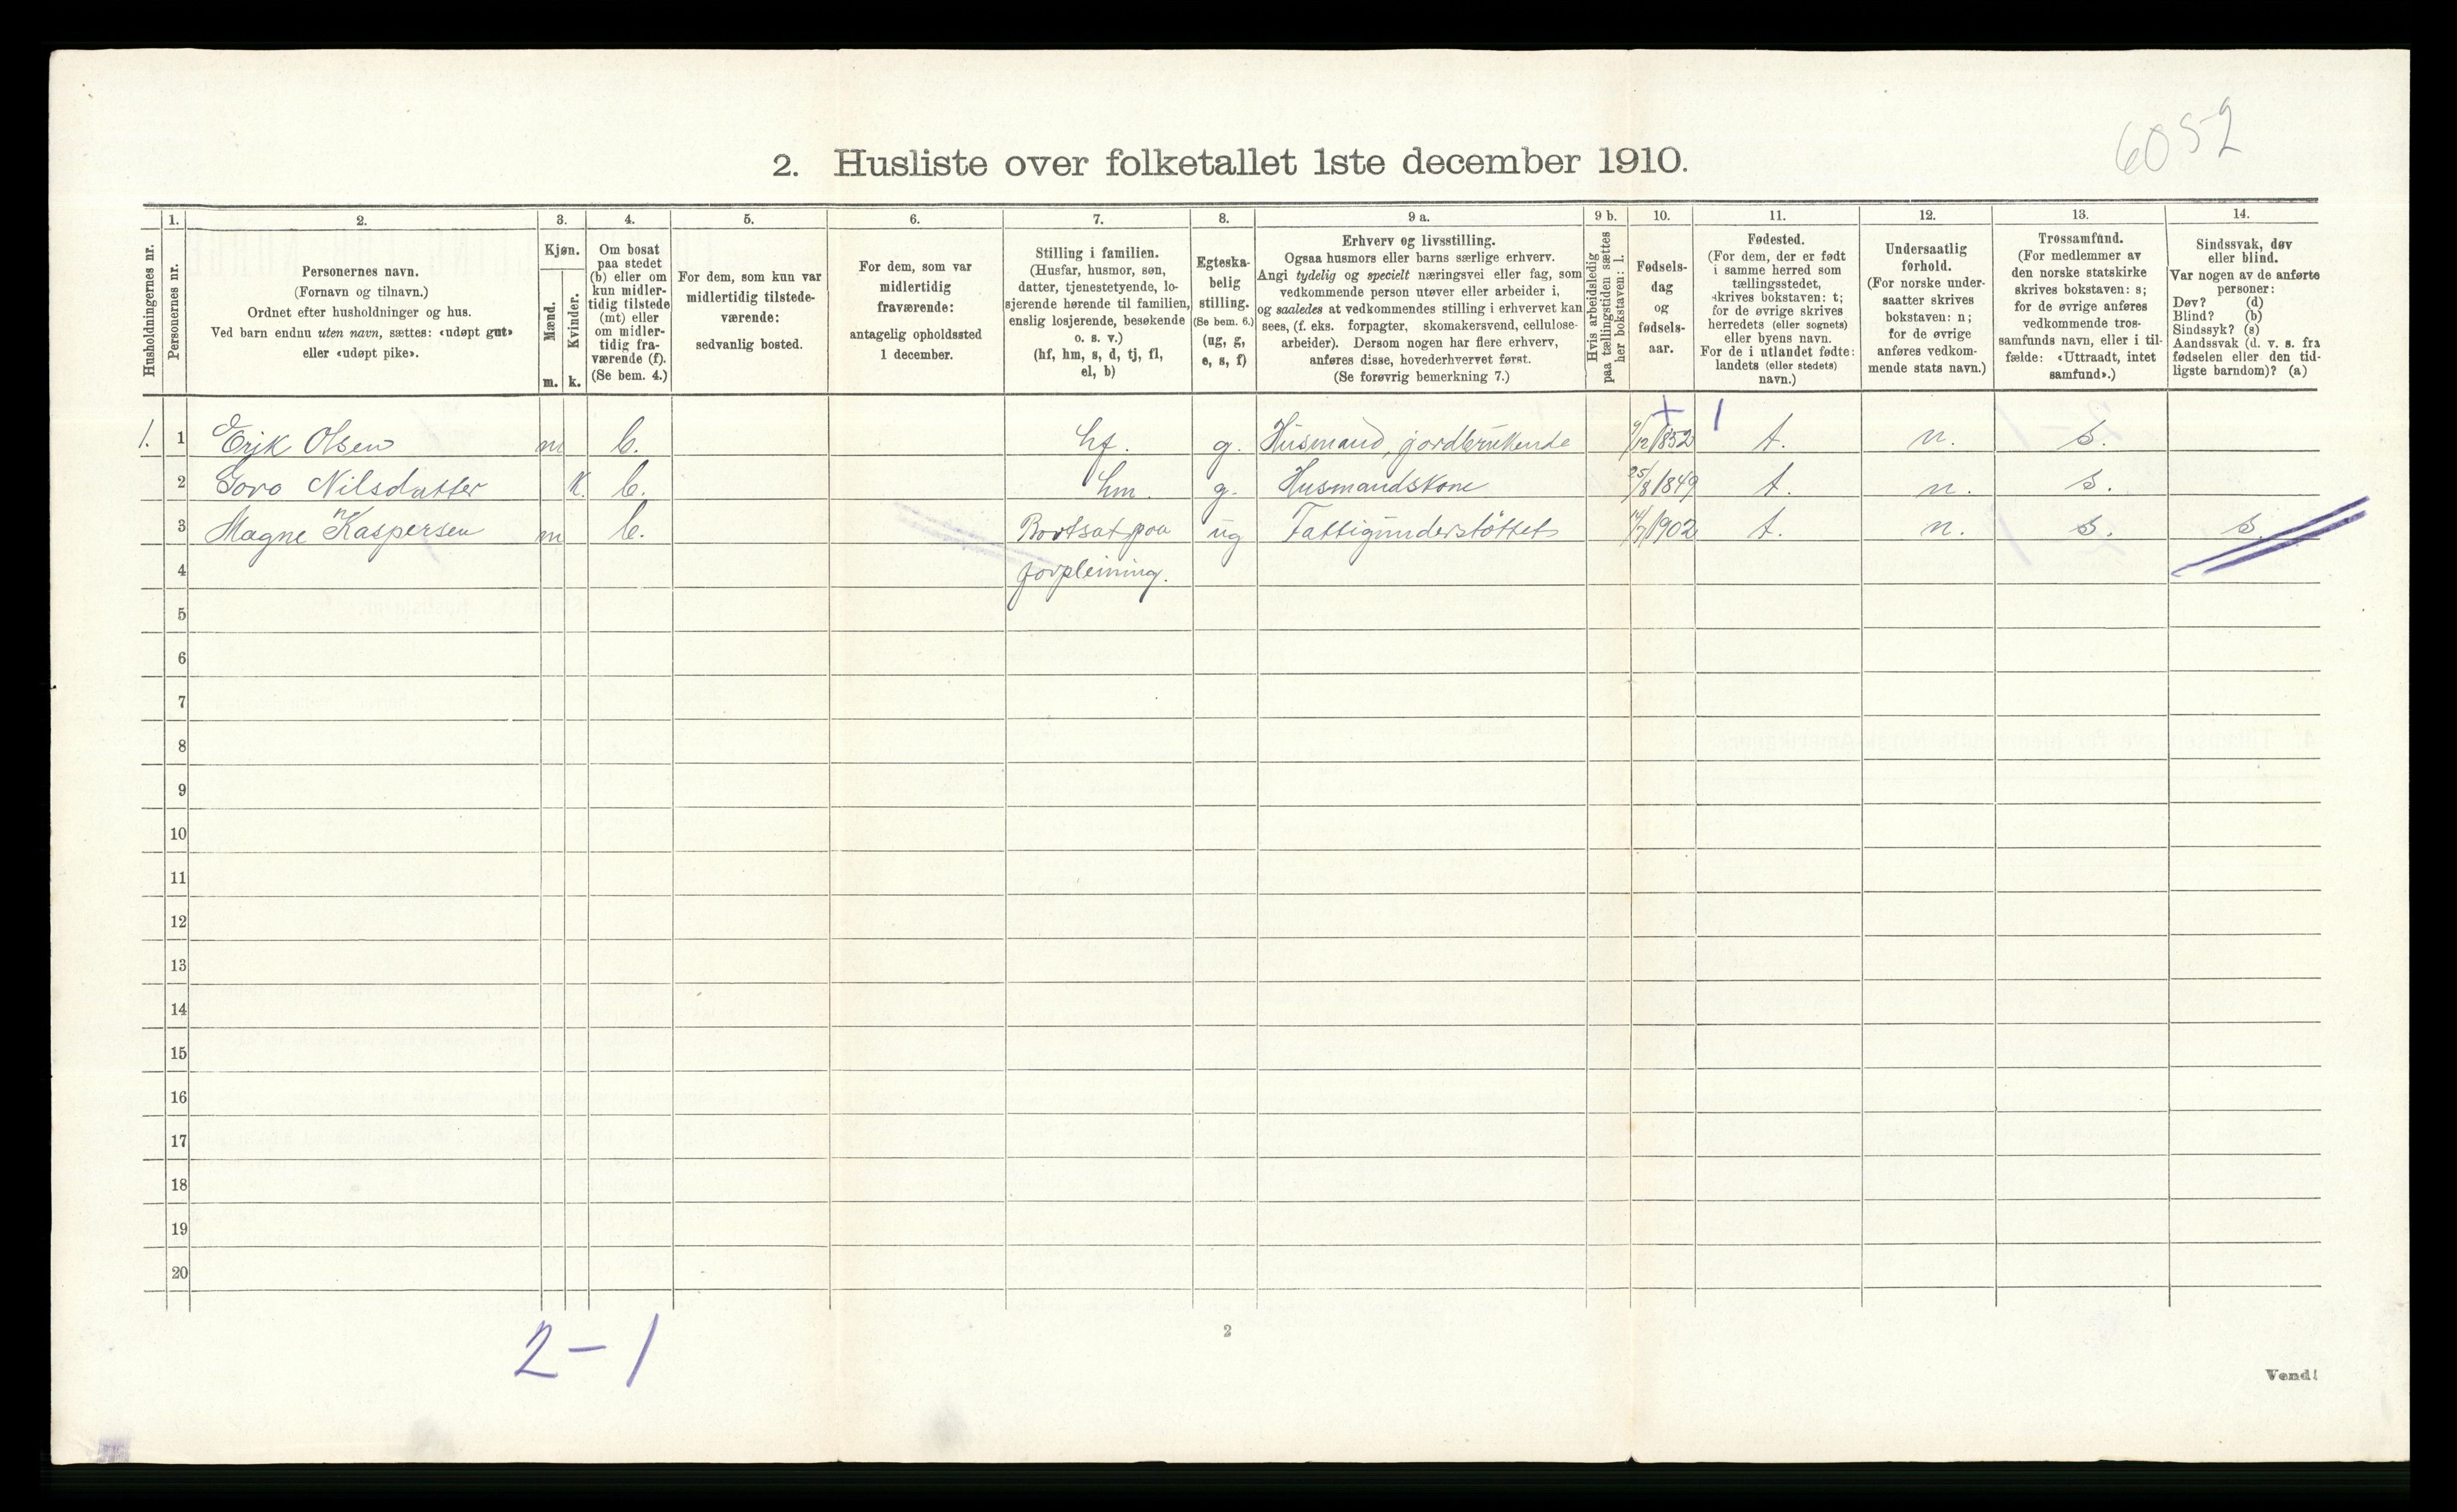 6052
2. Husliste over folketallet 1ste december 1910.
Husholdningernes nr.
1.
Personernes nr.
2.
Personernes navn.
(Fornavn og tilnavn.)
Ordnet efter husholdninger og hus.
Ved barn endnu uten navn, sættes: «udøpt gut»
eller «udøpt pike».
3.
Kjøn.
Mænd.
Kvinder.
m.
k.
4.
Om bosat
paa stedet
(b) eller om
kun midler-
tidig tilstede
(mt) eller
om midler-
tidig fra-
værende (f).
(Se bem. 4.)
5.
For dem, som kun var
midlertidig tilstede-
værende:
sedvanlig bosted.
6.
For dem, som var
midlertidig
fraværende:
antagelig opholdssted
1 december.
7.
Stilling i familien.
(Husfar, husmor, søn,
datter, tjenestetyende, lo-
sjerende hørende til familien,
enslig losjerende, besøkende
o. s. v.)
(hf, hm, s, d, tj, fl,
el, b)
8.
Egteska-
belig
stilling.
(Se bem. 6.)
(ug, g,
e, s, f)
9 a.
Erhverv og livsstilling.
Ogsaa husmors eller barns særlige erhverv.
Angi tydelig og specielt næringsvei eller fag, som
vedkommende person utøver eller arbeider i,
og saaledes at vedkommendes stilling i erhvervet kan
sees, (f. eks. forpagter, skomakersvend, cellulose-
arbeider). Dersom nogen har flere erhverv,
anføres disse, hovederhvervet først.
(Se forøvrig bemerkning 7.)
9 b.
Hvis arbeidsledig
paa tællingstiden sættes
her bokstaven: l.
10.
Fødsels-
dag
og
fødsels-
aar.
11.
Fødested.
(For dem, der er født
i samme herred som
tællingsstedet,
skrives bokstaven: t;
for de øvrige skrives
herredets (eller sognets)
eller byens navn.
For de i utlandet fødte:
landets (eller stedets)
navn.)
12.
Undersaatlig
forhold.
(For norske under-
saatter skrives
bokstaven: n;
for de øvrige
anføres vedkom-
mende stats navn.)
13.
Trossamfund.
(For medlemmer av
den norske statskirke
skrives bokstaven: s;
for de øvrige anføres
vedkommende tros-
samfunds navn, eller i til-
fælde: «Uttraadt, intet
samfund».)
14.
Sindssvak, døv
eller blind.
Var nogen av de anførte
personer:
Døv? (d)
Blind? (b)
Sindssyk? (s)
Aandssvak (d. v. s. fra
fødselen eller den tid-
ligste barndom)? (a)
1. 1 Erik Olsen m b. hf. g. Husmand, jordbrukende 9/12 1852 t. n. s.
2 Goro Nilsdatter K. b. hm. g. Husmandskone 25/8 1849 t. n. s.
3 Magne Kaspersen m b. Bortsat paa ug Fattigunderstöttet 14/7 1902 t. n. s. s.
4 forpleining.
5
6
7
8
9
10
11
12
13
14
15
16
17
18
19
20
2 - 1
2
Vend!